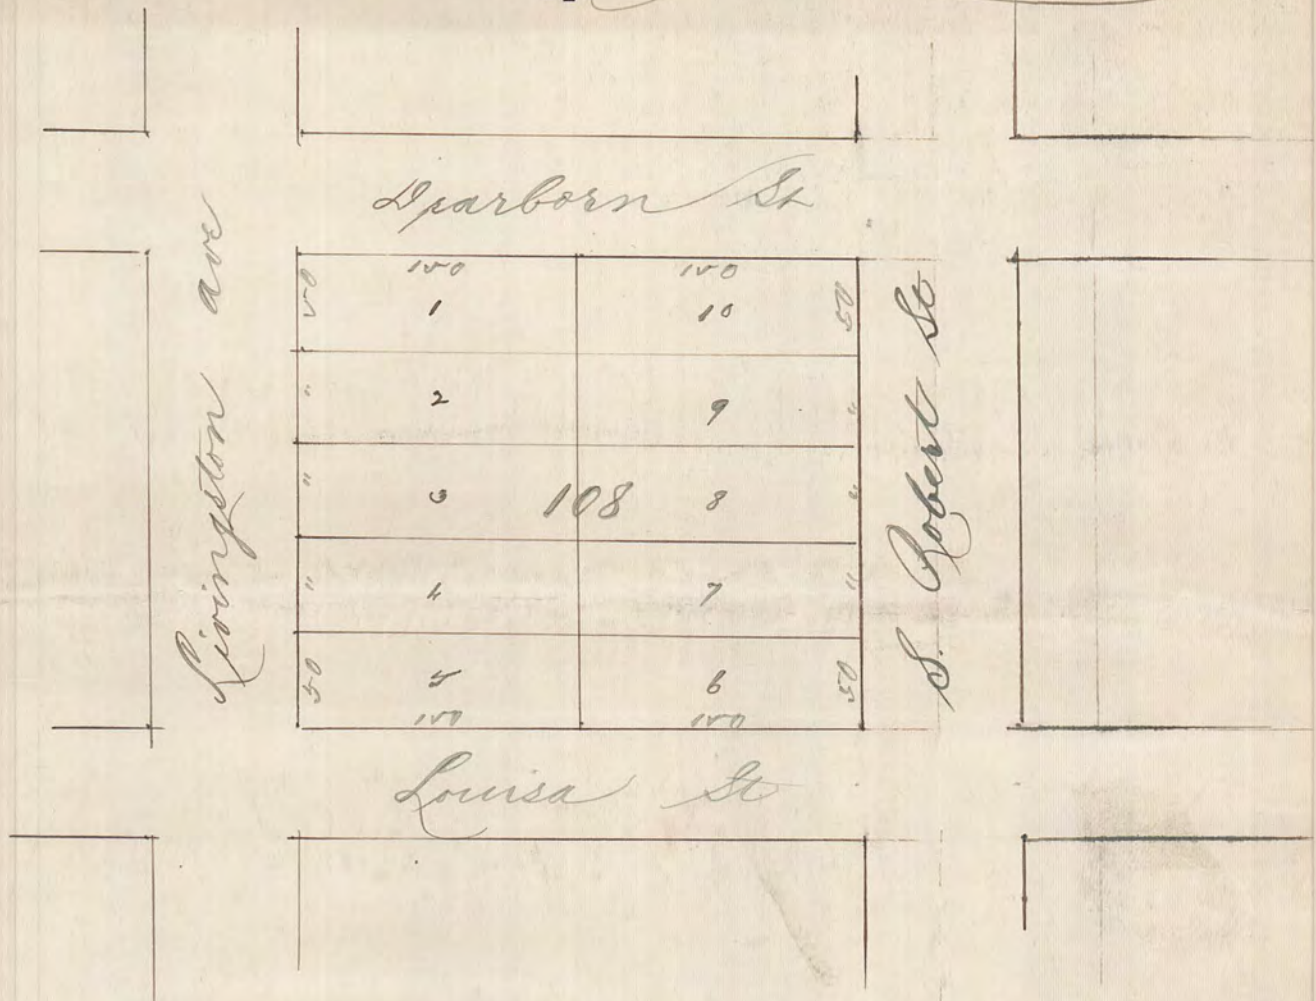 Dearborn St
Livingston ave
S. Robert St
150 150
50 1 10 50
" 2 9 "
" 3 8 "
108
" 4 7 "
50 5 6 50
150 150
Louisa St